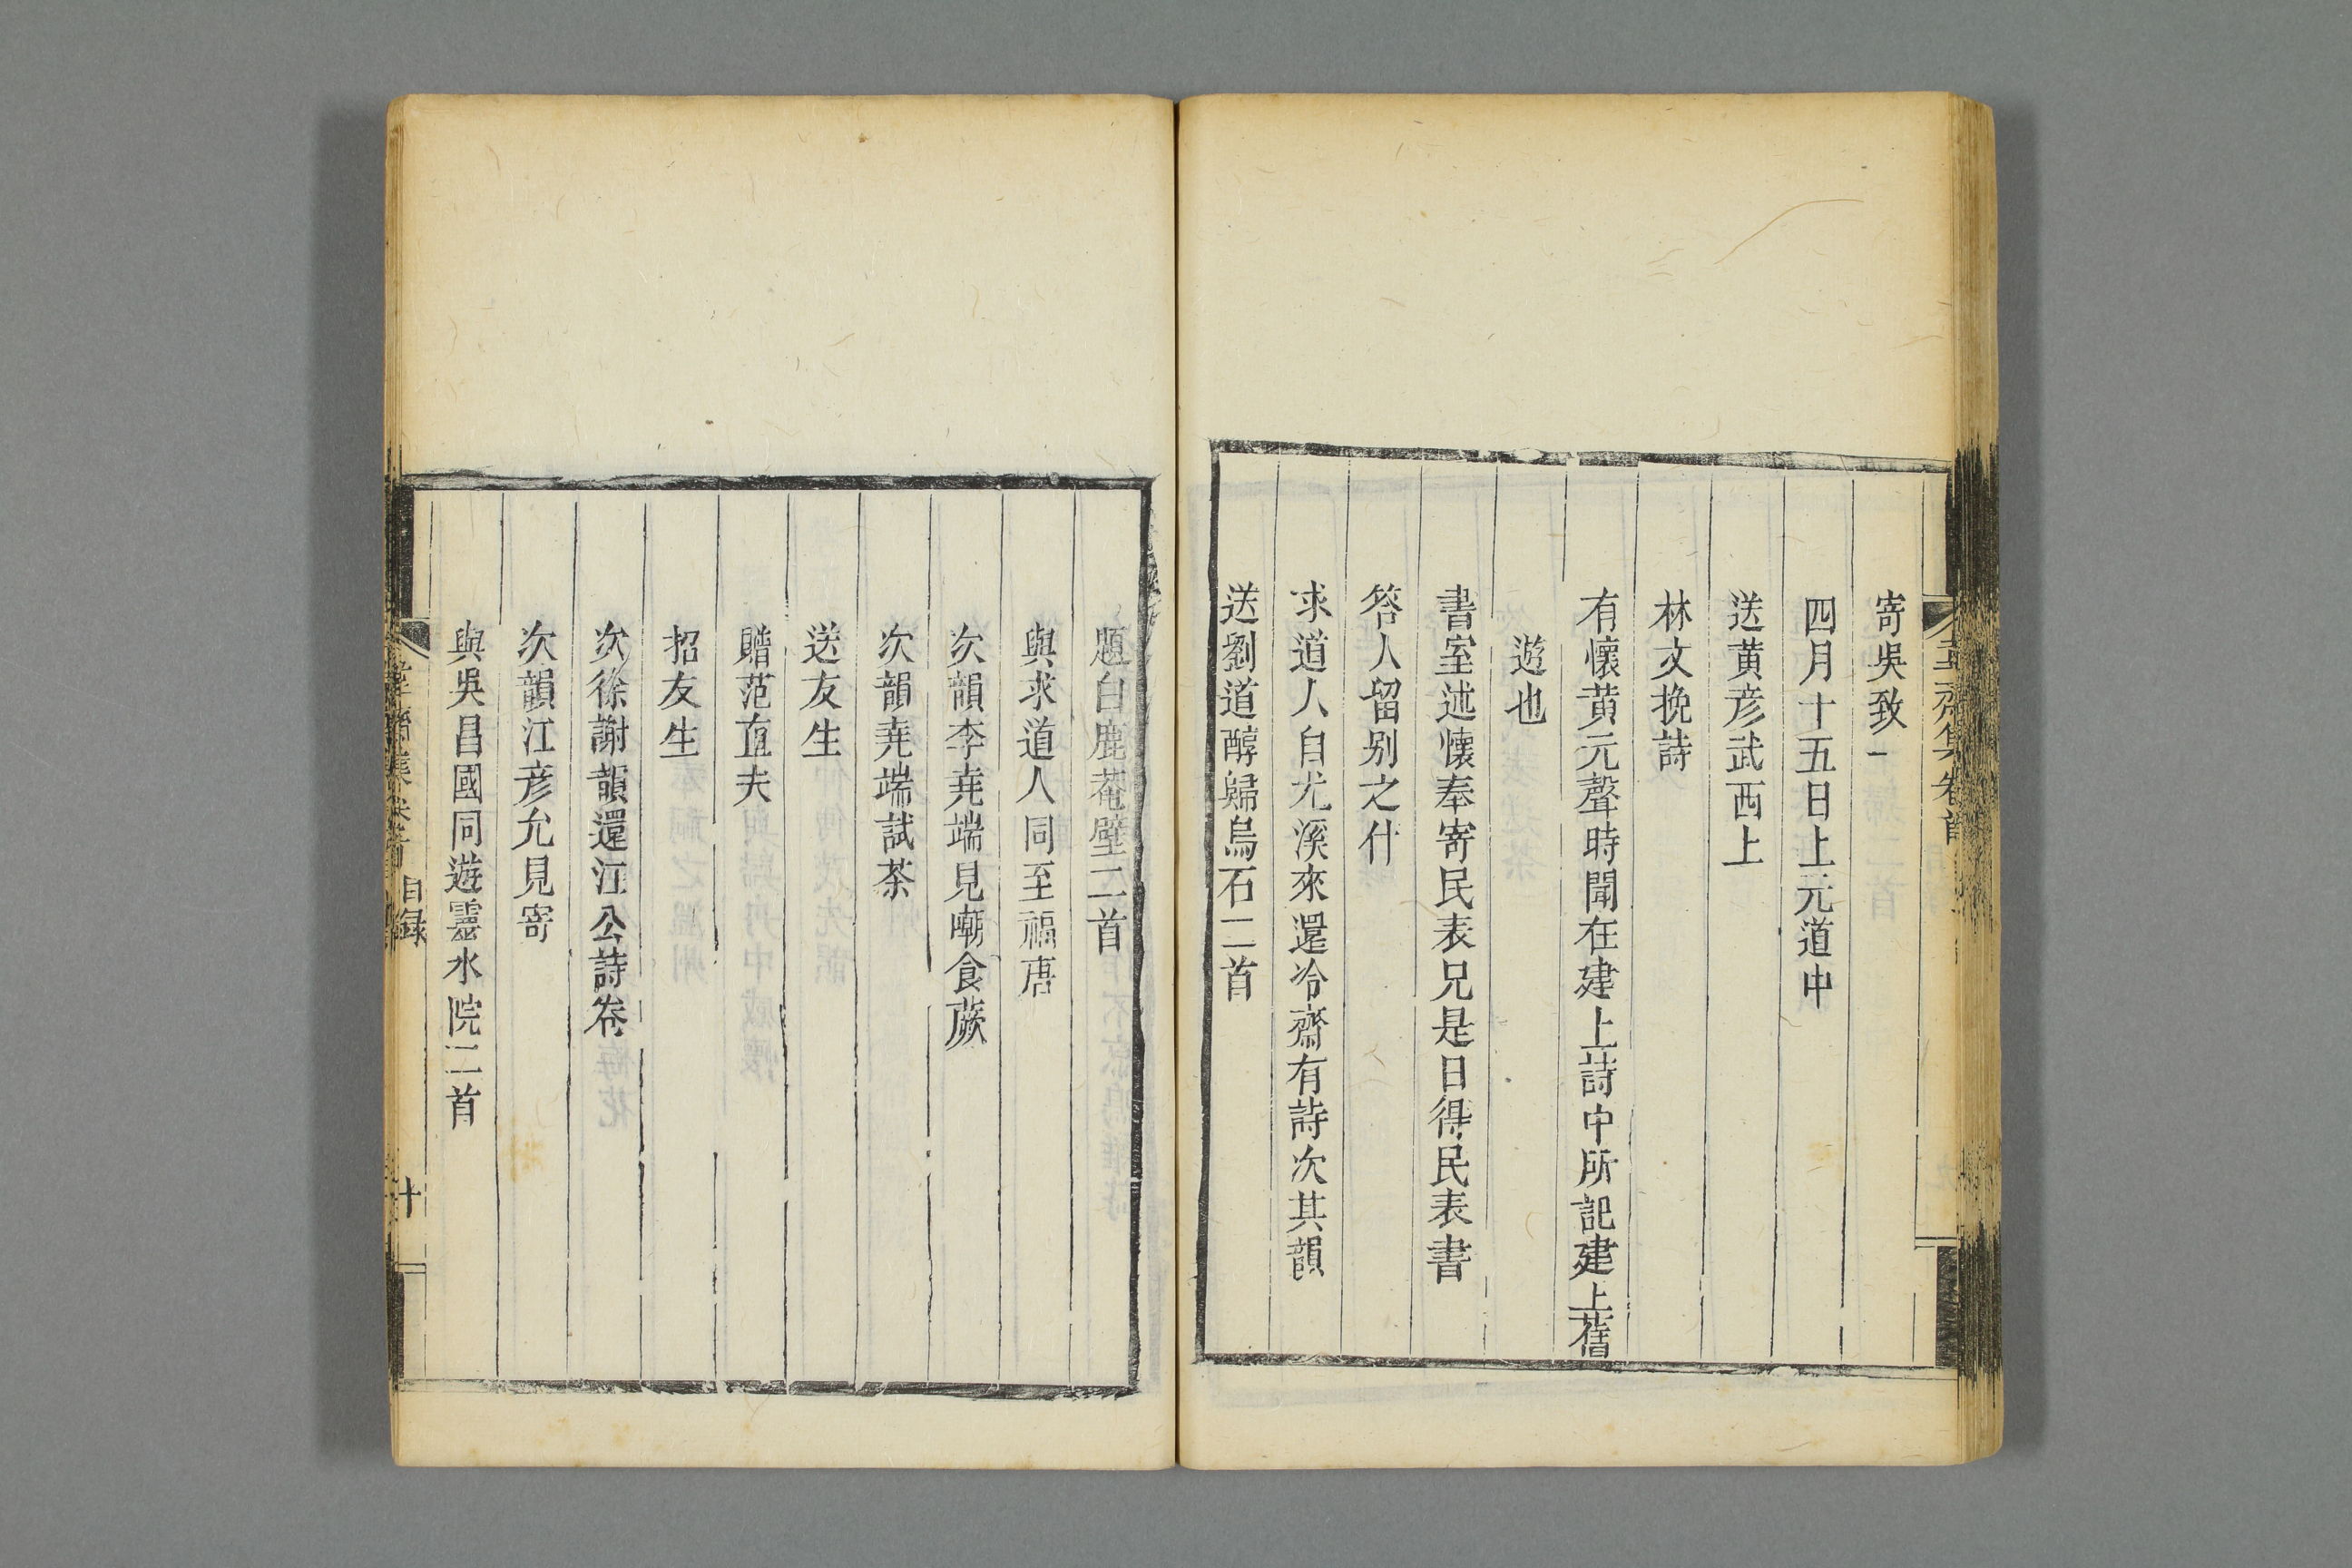 寄吳致一
四月十五日上元道中
送黃彥武西上
林文挽詩
有懷黃元聲時聞在建上詩中所記建上舊
遊也
書室述懷奉寄民表兄是日得民表書
答人留别之什
求道人自尤溪來還冷齋有詩次其韻
送劉道醇歸烏石二首
題白鹿菴壁二首
與求道人同至福唐
次韻李堯端見嘲食蕨
次韻堯端試茶
送友生
贈范直夫
招友生
次徐謝韻還江公詩卷
次韻江彥允見寄
與吳昌國同遊靈水院二首
目録
十